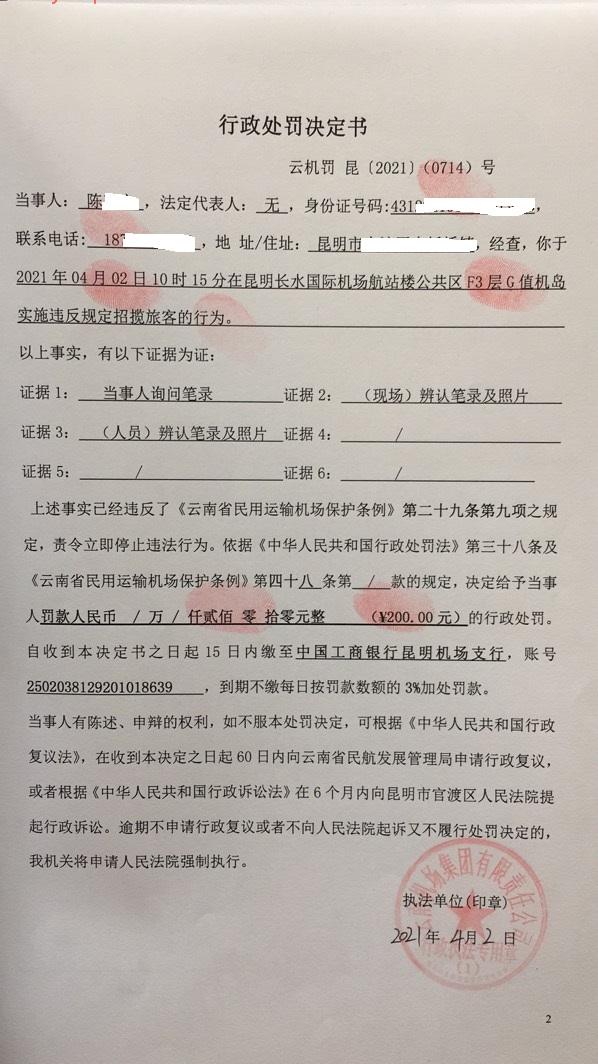 行政处罚决定书
云机罚 昆〔2021〕(0714) 号
当事人: 陈 , 法定代表人: 无 , 身份证号码:431 ,
联系电话: 187 , 地 址/住址: 昆明市 , 经查, 你于
2021 年 04 月 02 日 10 时 15 分在昆明长水国际机场航站楼公共区 F3 层 G 值机岛
实施违反规定招揽旅客的行为。
以上事实, 有以下证据为证:
证据 1: 当事人询问笔录 证据 2: (现场) 辨认笔录及照片
证据 3: (人员) 辨认笔录及照片 证据 4: /
证据 5: / 证据 6: /
上述事实已经违反了《云南省民用运输机场保护条例》第二十九条第九项之规
定, 责令立即停止违法行为。依据《中华人民共和国行政处罚法》第三十八条及
《云南省民用运输机场保护条例》第四十八 条第 / 款的规定, 决定给予当事
人罚款人民币 / 万 / 仟贰佰 零 拾零元整 (¥200.00 元) 的行政处罚。
自收到本决定书之日起 15 日内缴至中国工商银行昆明机场支行, 账号
2502038129201018639 , 到期不缴每日按罚款数额的 3%加处罚款。
当事人有陈述、申辩的权利, 如不服本处罚决定, 可根据《中华人民共和国行政
复议法》, 在收到本决定之日起 60 日内向云南省民航发展管理局申请行政复议,
或者根据《中华人民共和国行政诉讼法》在 6 个月内向昆明市官渡区人民法院提
起行政诉讼。逾期不申请行政复议或者不向人民法院起诉又不履行处罚决定的,
我机关将申请人民法院强制执行。
执法单位(印章)
2021 年 4 月 2 日
云南机场集团有限责任公司
行政执法专用章
(1)
2